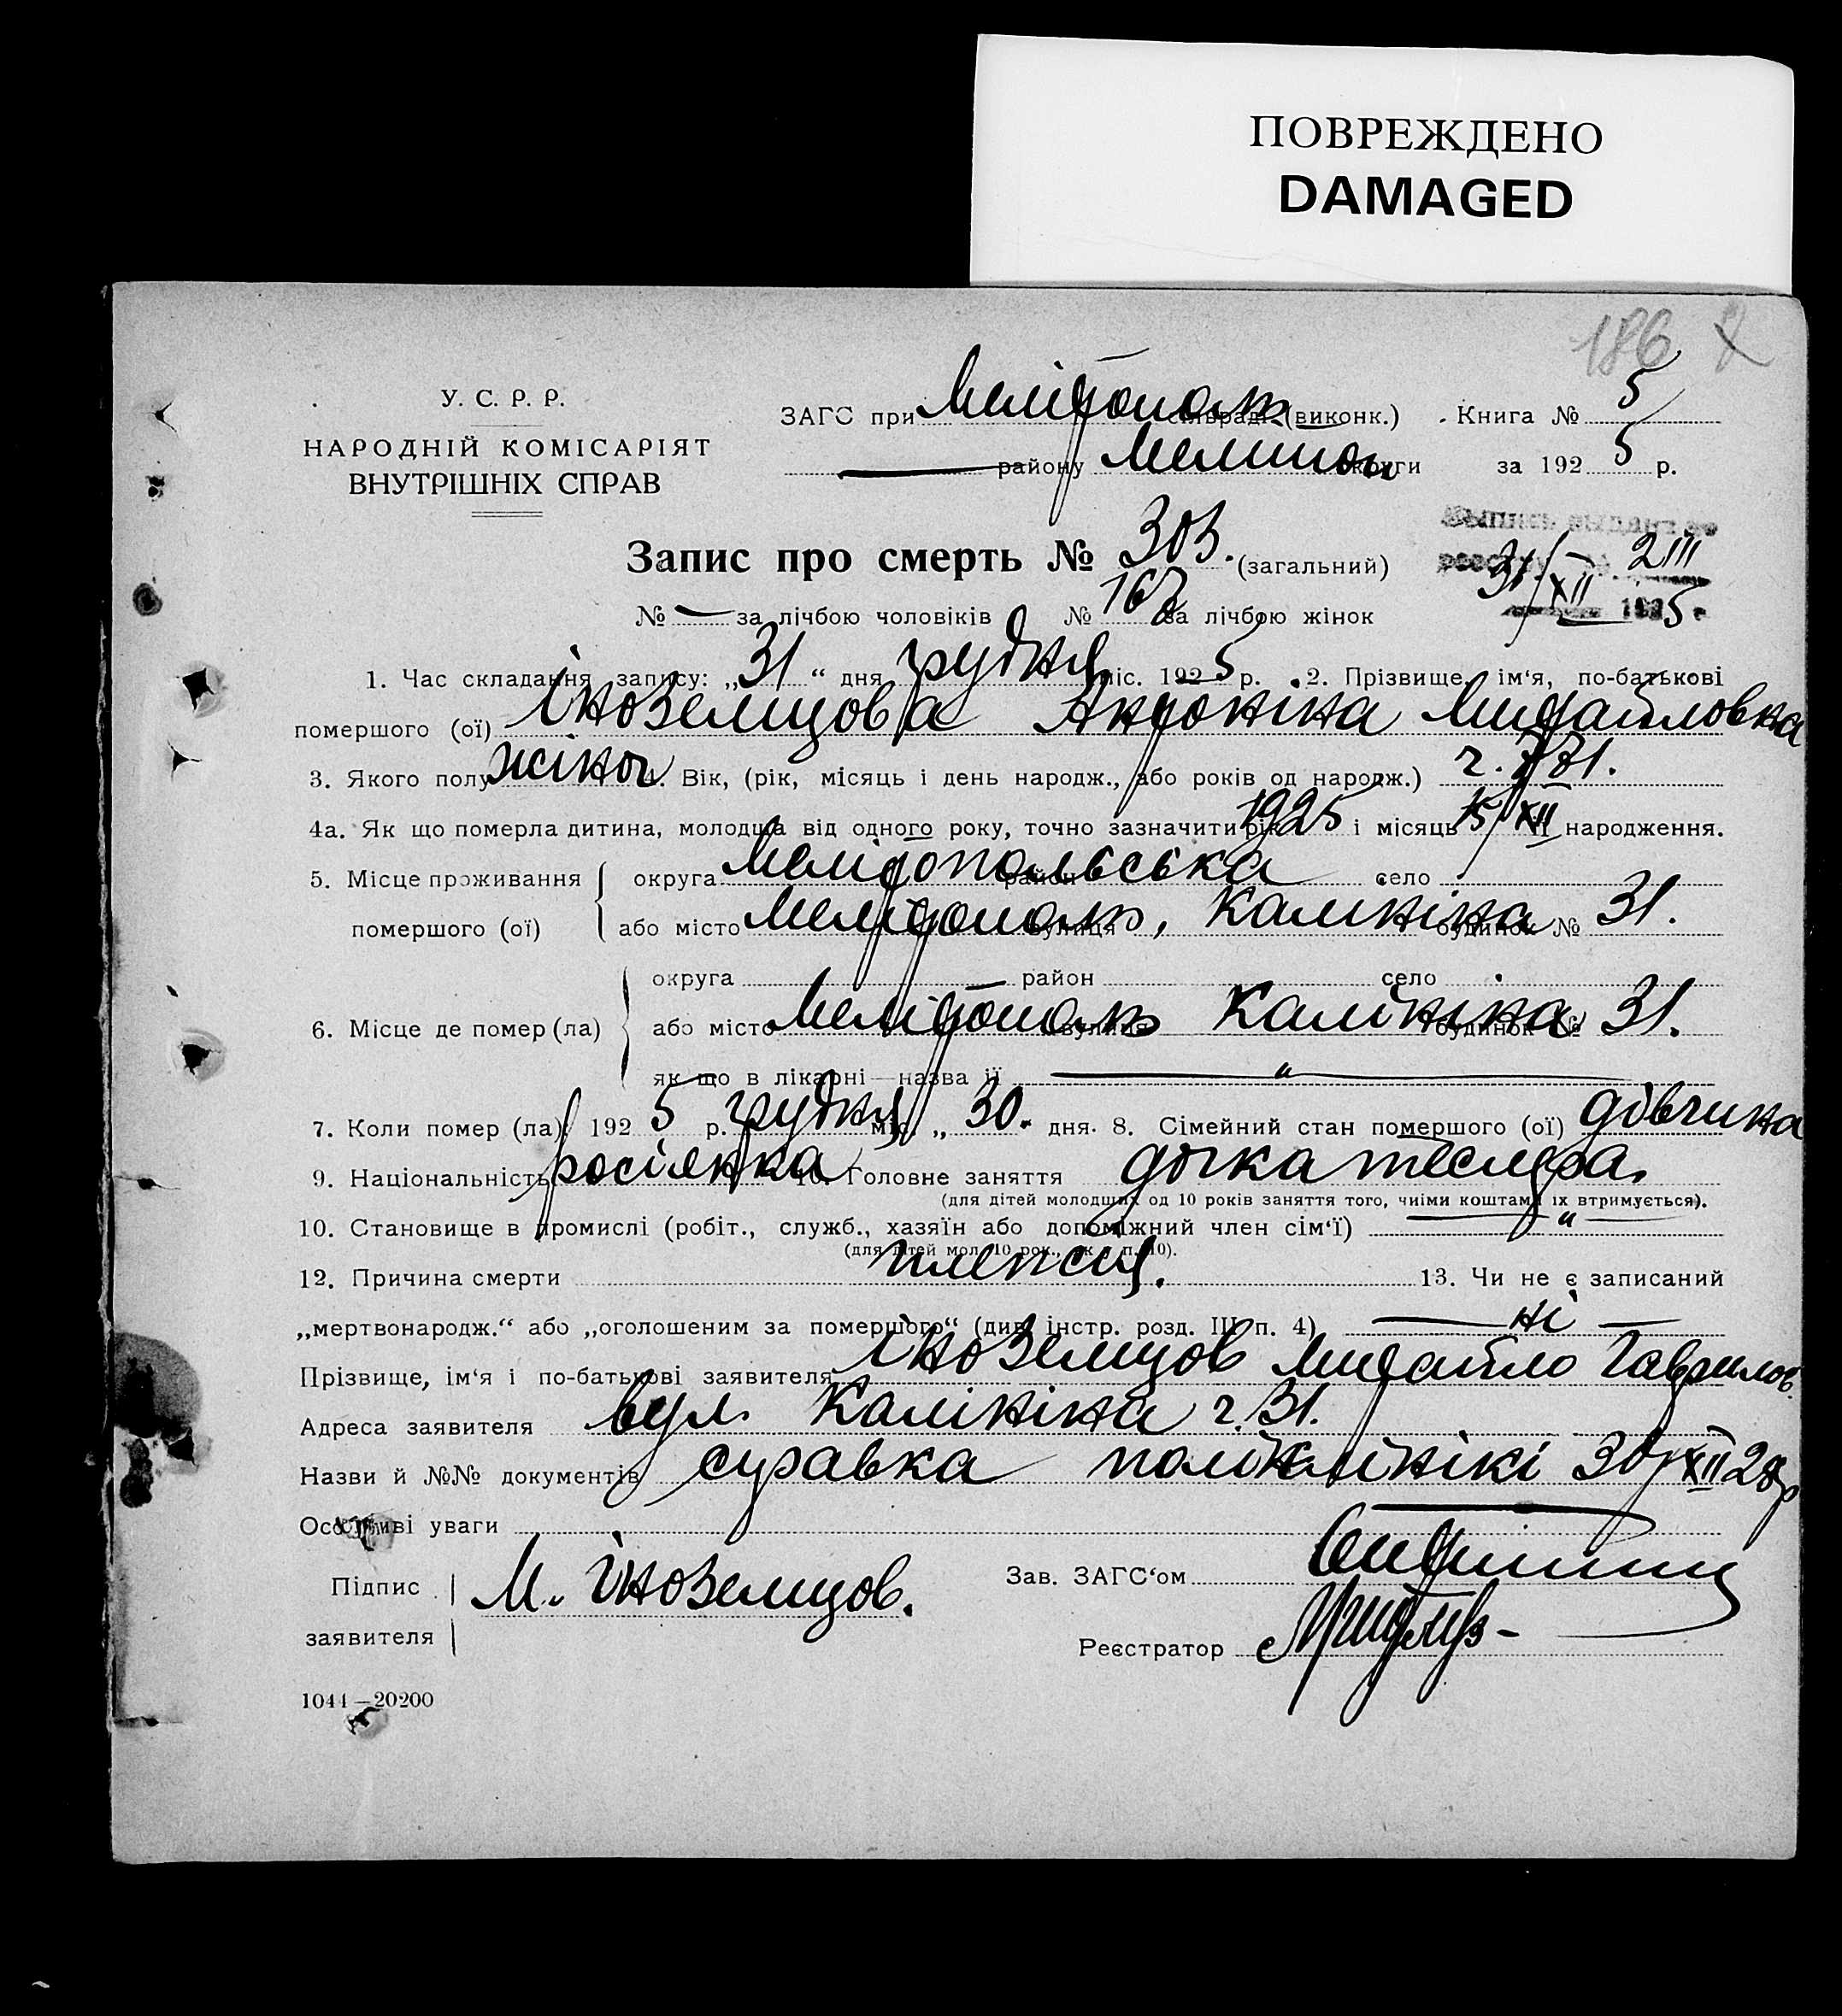 ПОВРЕЖДЕНО
DAMAGED
186
У. С. Р. Р.
НАРОДНІЙ КОМІСАРІЯТ
ВНУТРІШНІХ СПРАВ
ЗАГС при Мелітополь сільраді (виконк.) Книга № 5
— району Мелитоп округи за 1925 р.
Запис про смерть № 303. (загальний)
31/XII 5
№ — за лічбою чоловіків № за лічбою жінок
1. Час складання запису: „31“ дня грудня міс. 1925 р. 2. Прізвище, ім‘я, по-батькові
помершого (ої) Іноземцова Антоніна Михайловна
3. Якого полу жіноч 4. Вік, (рік, місяць і день народж., або років од народж.)
4а. Як що померла дитина, молодща від одного року, точно зазначити рік 1925 і місяць 15/XII її народження.
5. Місце проживання округа Мелітопольська район село
помершого (ої) або місто Мелітополь, вулиця Калініна будинок № 31.
округа район село
6. Місце де помер (ла) або місто Мелітополь вулиця Калініна будинок № 31.
як що в лікарні—назва її — „ —
7. Коли помер (ла) 1925 р. грудня міс. „30. дня. 8. Сімейний стан помершого (ої) дівчина
9. Національність росіянка 10. Головне заняття дочка тесляра.
(для дітей молодщих од 10 років заняття того, чиїми коштами їх втримується).
10. Становище в промислі (робіт., служб., хазяїн або допоміжний член сім‘ї) — „ —
(для дітей мол. 10 рок., як у п. 10).
12. Причина смерти 13. Чи не є записаний
„мертвонародж.“ або „оголошеним за помершого“ (див. інстр. розд. III п. 4) — ні —
Прізвище, ім‘я і по-батькові заявителя Іноземцов Михайло Гаврилов.
Адреса заявителя вул. Калініна ч. 31.
Назви й №№ документів справка поліклінікі 30/XII
Особливі уваги
Підпис заявителя М. Іноземцов.
Зав. ЗАГС‘ом
Реєстратор
1044—20200